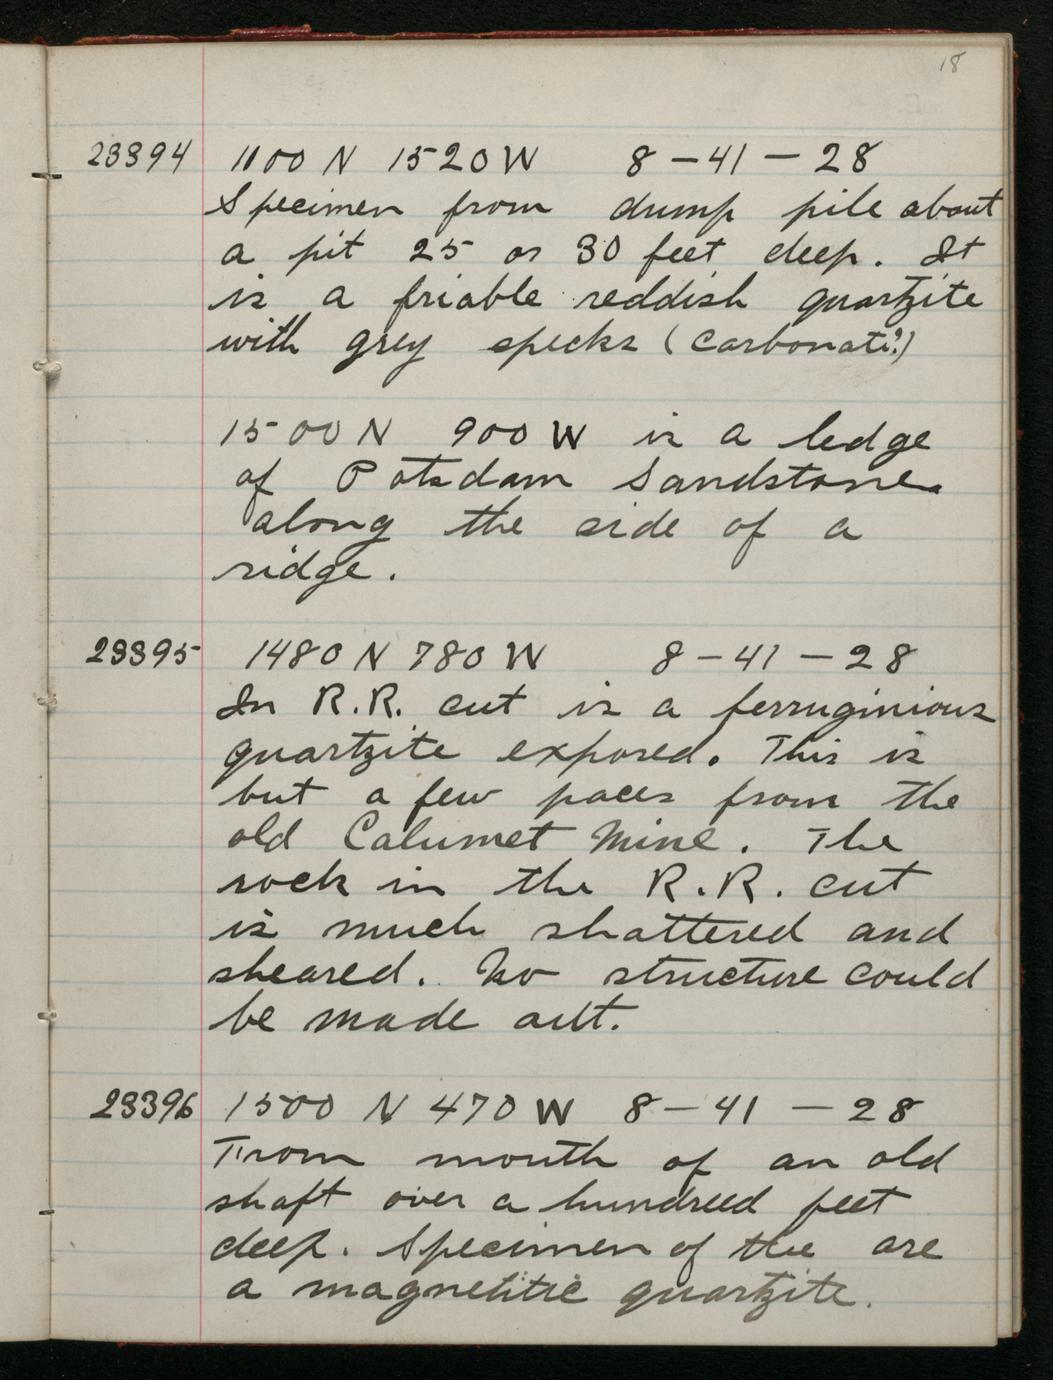 18
23394 1100 N 1520 W 8-41-28
Specimen from dump pile about
a pit 25 or 30 feet deep. It
is a friable reddish quartzite
with grey specks (Carbonate?)
1500 N 900 W is a ledge
of Potsdam Sandstone
along the side of a
ridge.
23395 1480 N 780 W 8-41-28
In R.R. cut is a ferruginious
quartzite exposed. This is
but a few paces from the
old Calumet Mine. The
rock in the R.R. cut
is much shattered and
sheared. No structure could
be made out.
23396 1500 N 470 W 8-41-28
From mouth of an old
shaft over a hundreed feet
deep. Specimen of the are
a magnetitic quartzite.